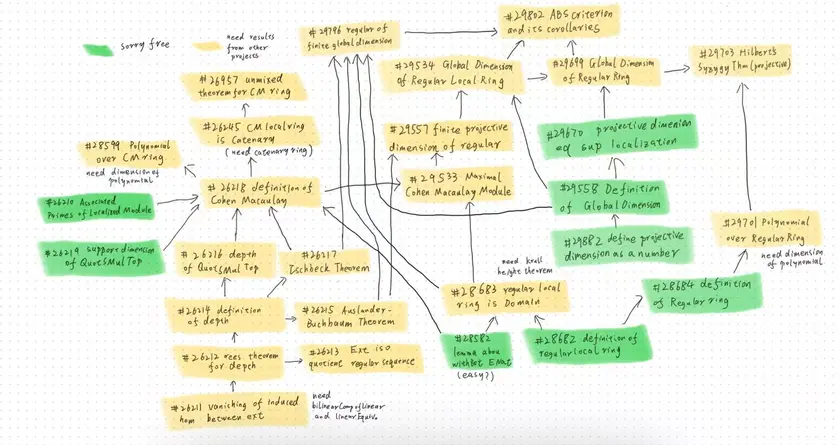 sorry free
need results
from other
projects
#29796 regular of
finite global dimension
#29802 ABS criterion
and its corollaries
#29534 Global Dimension
of Regular Local Ring
#29699 Global Dimension
of Regular Ring
#29703 Hilbert's
Syzygy Thm (projective)
#26957 unmixed
theorem for CM ring
#26245 CM local ring
is Catenary
(need catenary ring)
#28599 Polynomial
over CM ring
need dimension of
polynomial
#29557 finite projective
dimension of regular
#29670 projective dimension
eq sup localization
#26210 Associated
Primes of Localized Module
#26218 definition of
Cohen Macaulay
#29533 Maximal
Cohen Macaulay Module
#29558 Definition
of Global Dimension
#26219 support dimension
of QuotSMulTop
#26216 depth
of QuotSMulTop
#26217
Ischbeck Theorem
#29882 define projective
dimension as a number
#29701 Polynomial
over Regular Ring
need dimension
of polynomial
need krull
height theorem
#28683 regular local
ring is Domain
#28684 definition
of Regular ring
#26214 definition
of depth
#26215 Auslander-
Buchbaum Theorem
#28582
lemma abou
withBot ENat
(easy?)
#28682 definition of
regular local ring
#26212 rees theorem
for depth
#26213 Ext iso
quotient regular sequence
#26211 Vanching of Induced
hom between ext
need
bilinearComp of Linear
and linearEquiv.